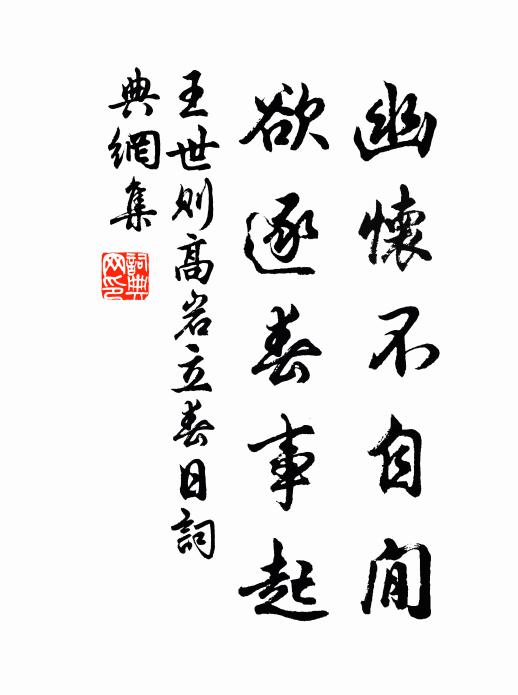 幽懷不自閒
欲逐春事起
王世則高岩立春日詞
典網集
詞典
网印